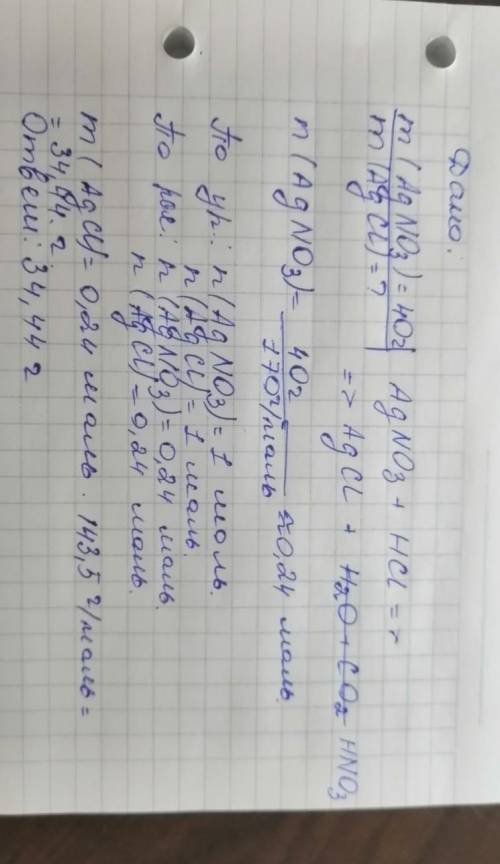 Дано:
m(AgNO3) = 40г
m(AgCl) = ?
AgNO3 + HCl =>
=> AgCl + H2O + CO2 HNO3
n(AgNO3) = 40г / 170г/моль ≈ 0,24 моль.
По ур.: n(AgNO3) = 1 моль.
n(AgCl) = 1 моль.
По рис.: n(AgNO3) = 0,24 моль.
n(AgCl) = 0,24 моль.
m(AgCl) = 0,24 моль. 143,5 г/моль =
= 34,44 г.
Ответ: 34,44 г